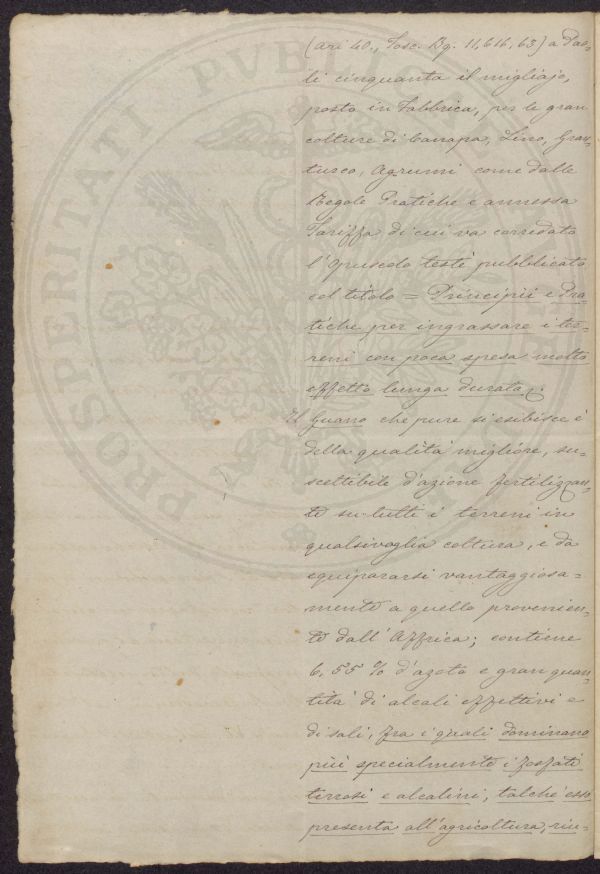 (ari 40., Tosc. Bq. 11,616,63) a Pao-
li cinquanta il migliajo,
posto in Fabbrica, per le gran
colture di Canapa, Lino, Gran-
turco, Agrumi come dalle
Regole Pratiche e annessa
Tariffa di cui va corredato
l'Opuscolo testè pubblicato
col titolo = Principii e Pra-
tiche per ingrassare i ter-
reni con poca spesa molto
effetto lunga durata.
Il Guano che pure si esibisce è
della qualità migliore, su-
scettibile d'azione fertilizzan-
te su tutti i terreni in
qualsivoglia coltura, e da
equipararsi vantaggiosa-
mente a quello provenien-
te dall'Affrica; contiene
6,55 % d'azoto e gran quan-
tità di alcali effettivi e
di sali, fra i quali dominano
più specialmente i fosfati
terrosi e alcalini, talchè esso
presenta all'agricoltura, riu-
PROSPERITATI PVBLICAE